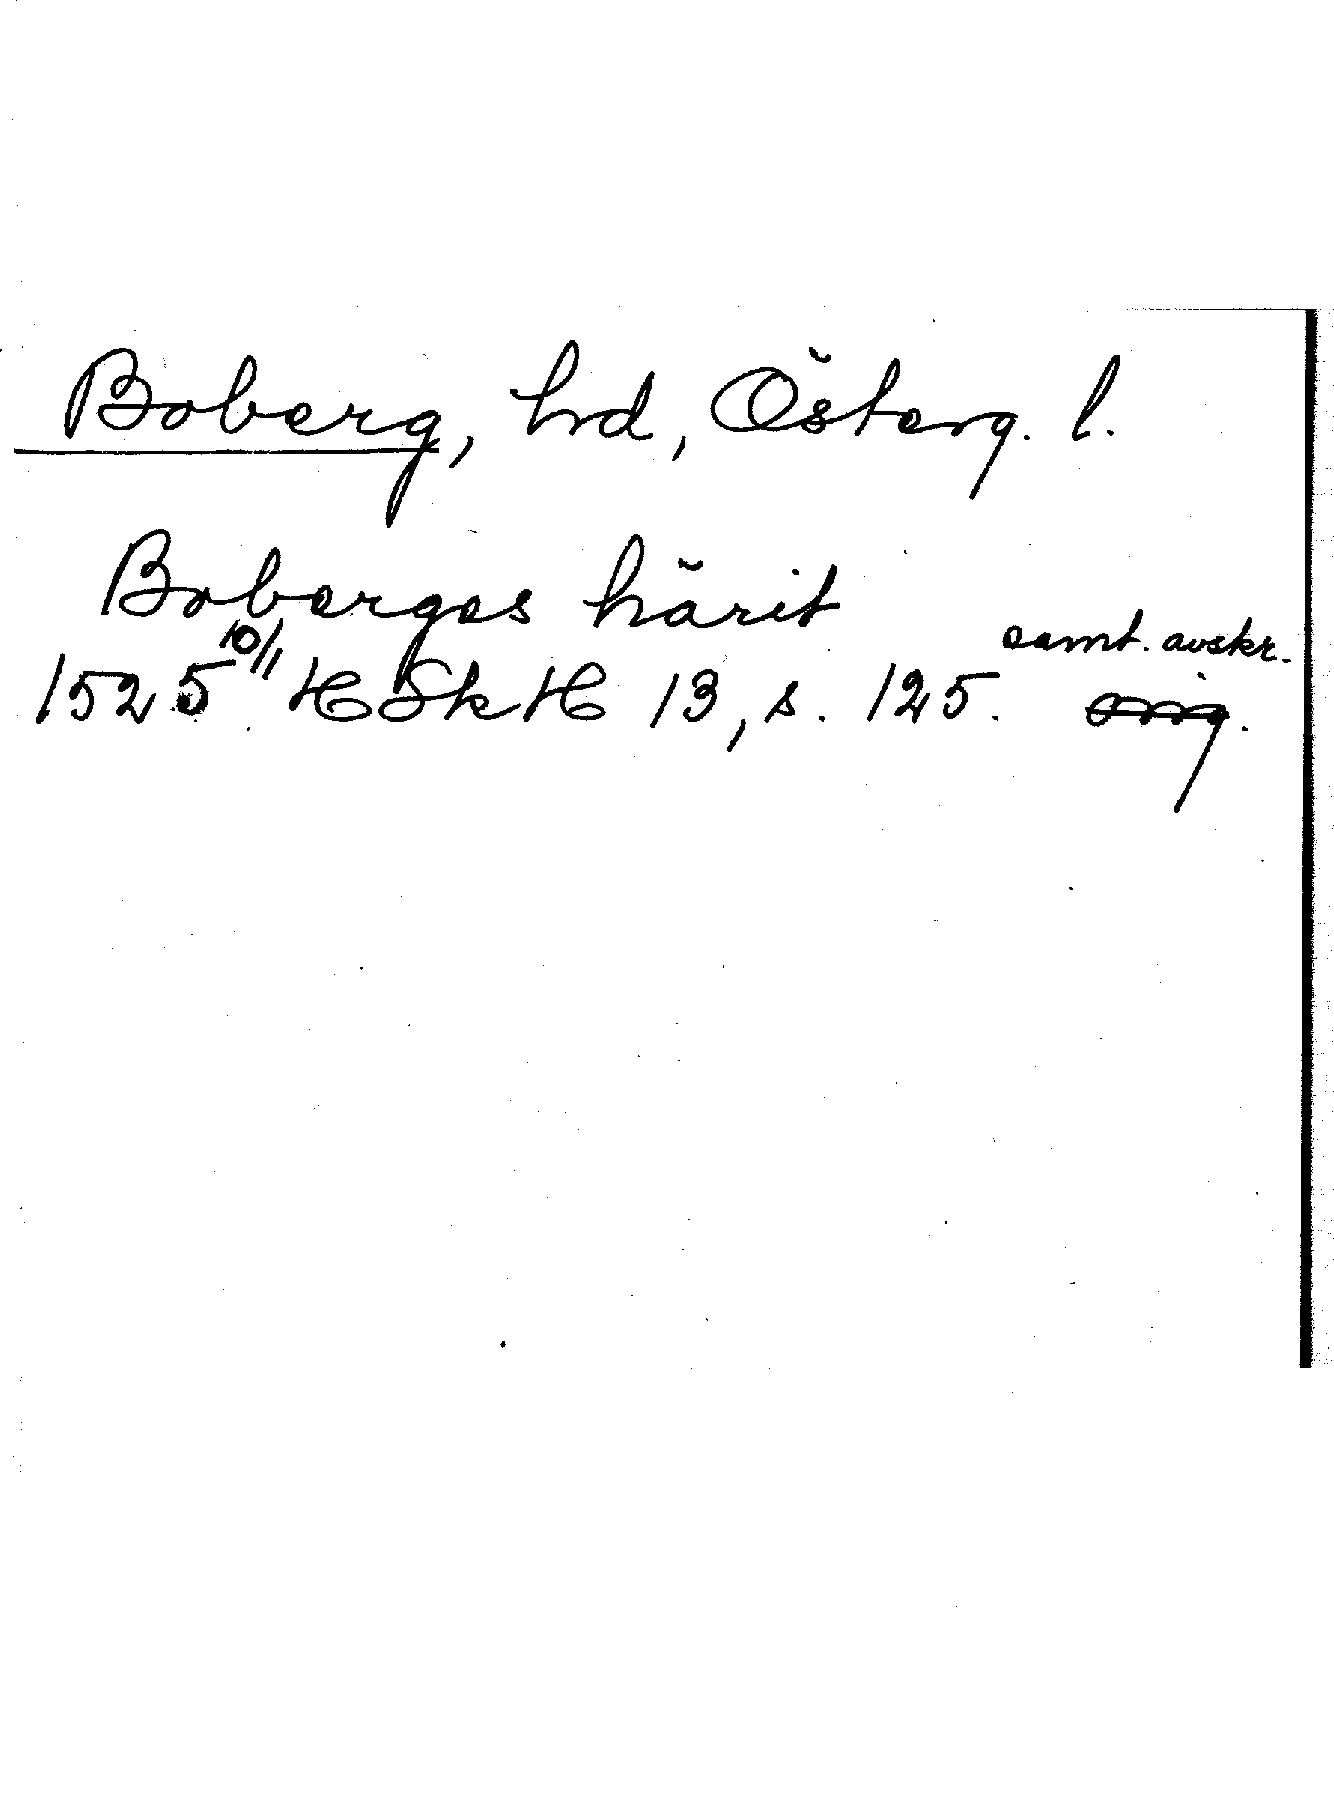 Boberg, hrd, Österg. l.
Boberges härit
samt. avskr.
1525 10/1 HSkH 13, s. 125. orig.